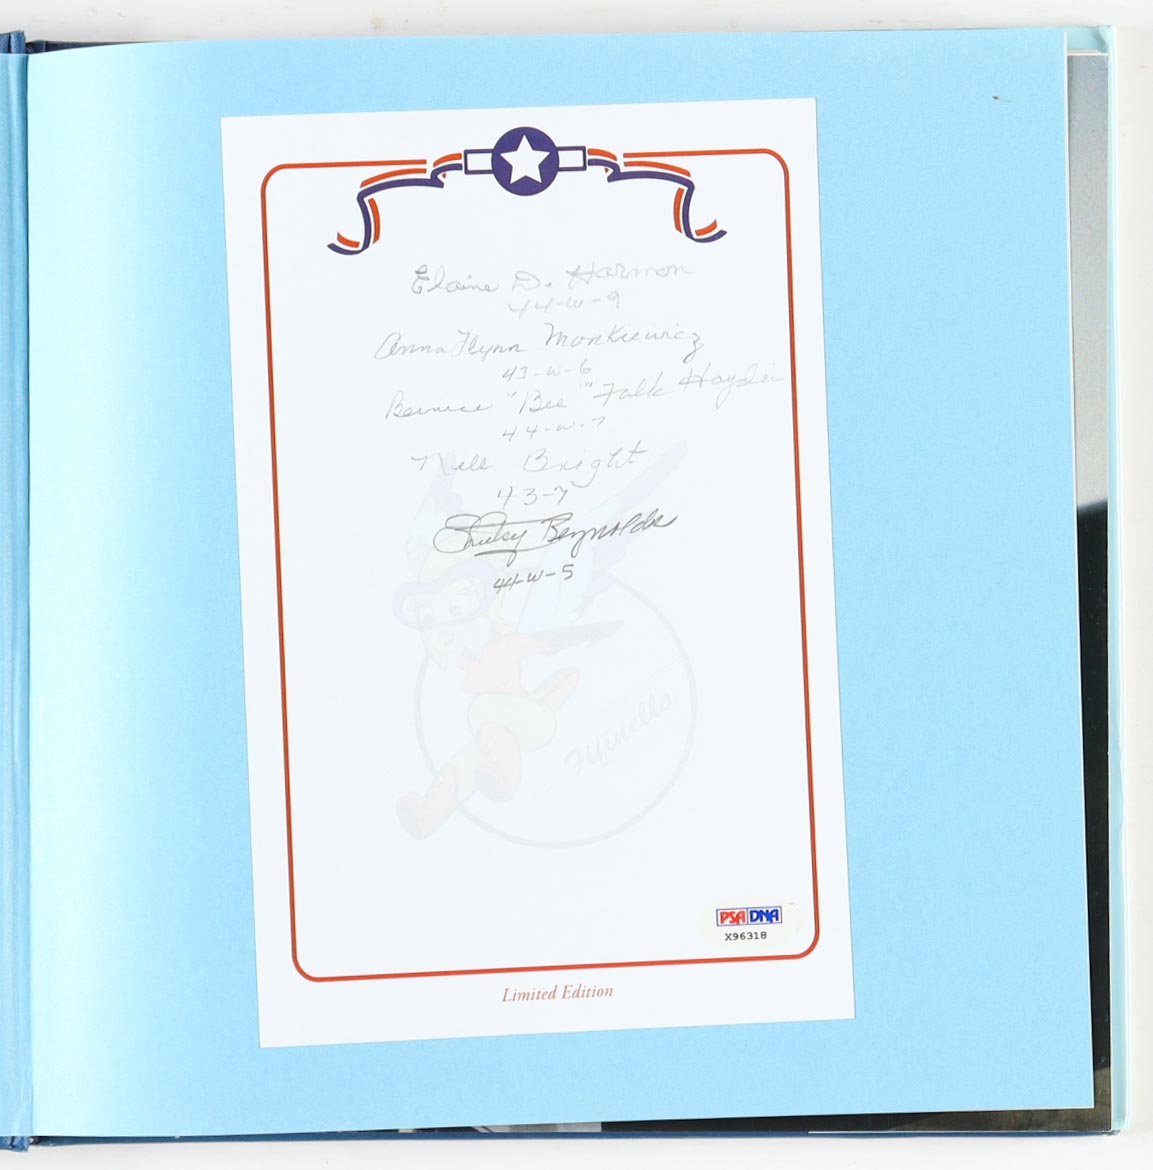 Elaine D. Harmon
44-W-9
Anna Flynn Monkiewicz
43-W-6
Bernice "Bee" Falk Haydu
44-W-7
Nell Bright
43-7
Shutsy Reynolds
44-W-5
Fifinella
PSA DNA
X96318
Limited Edition